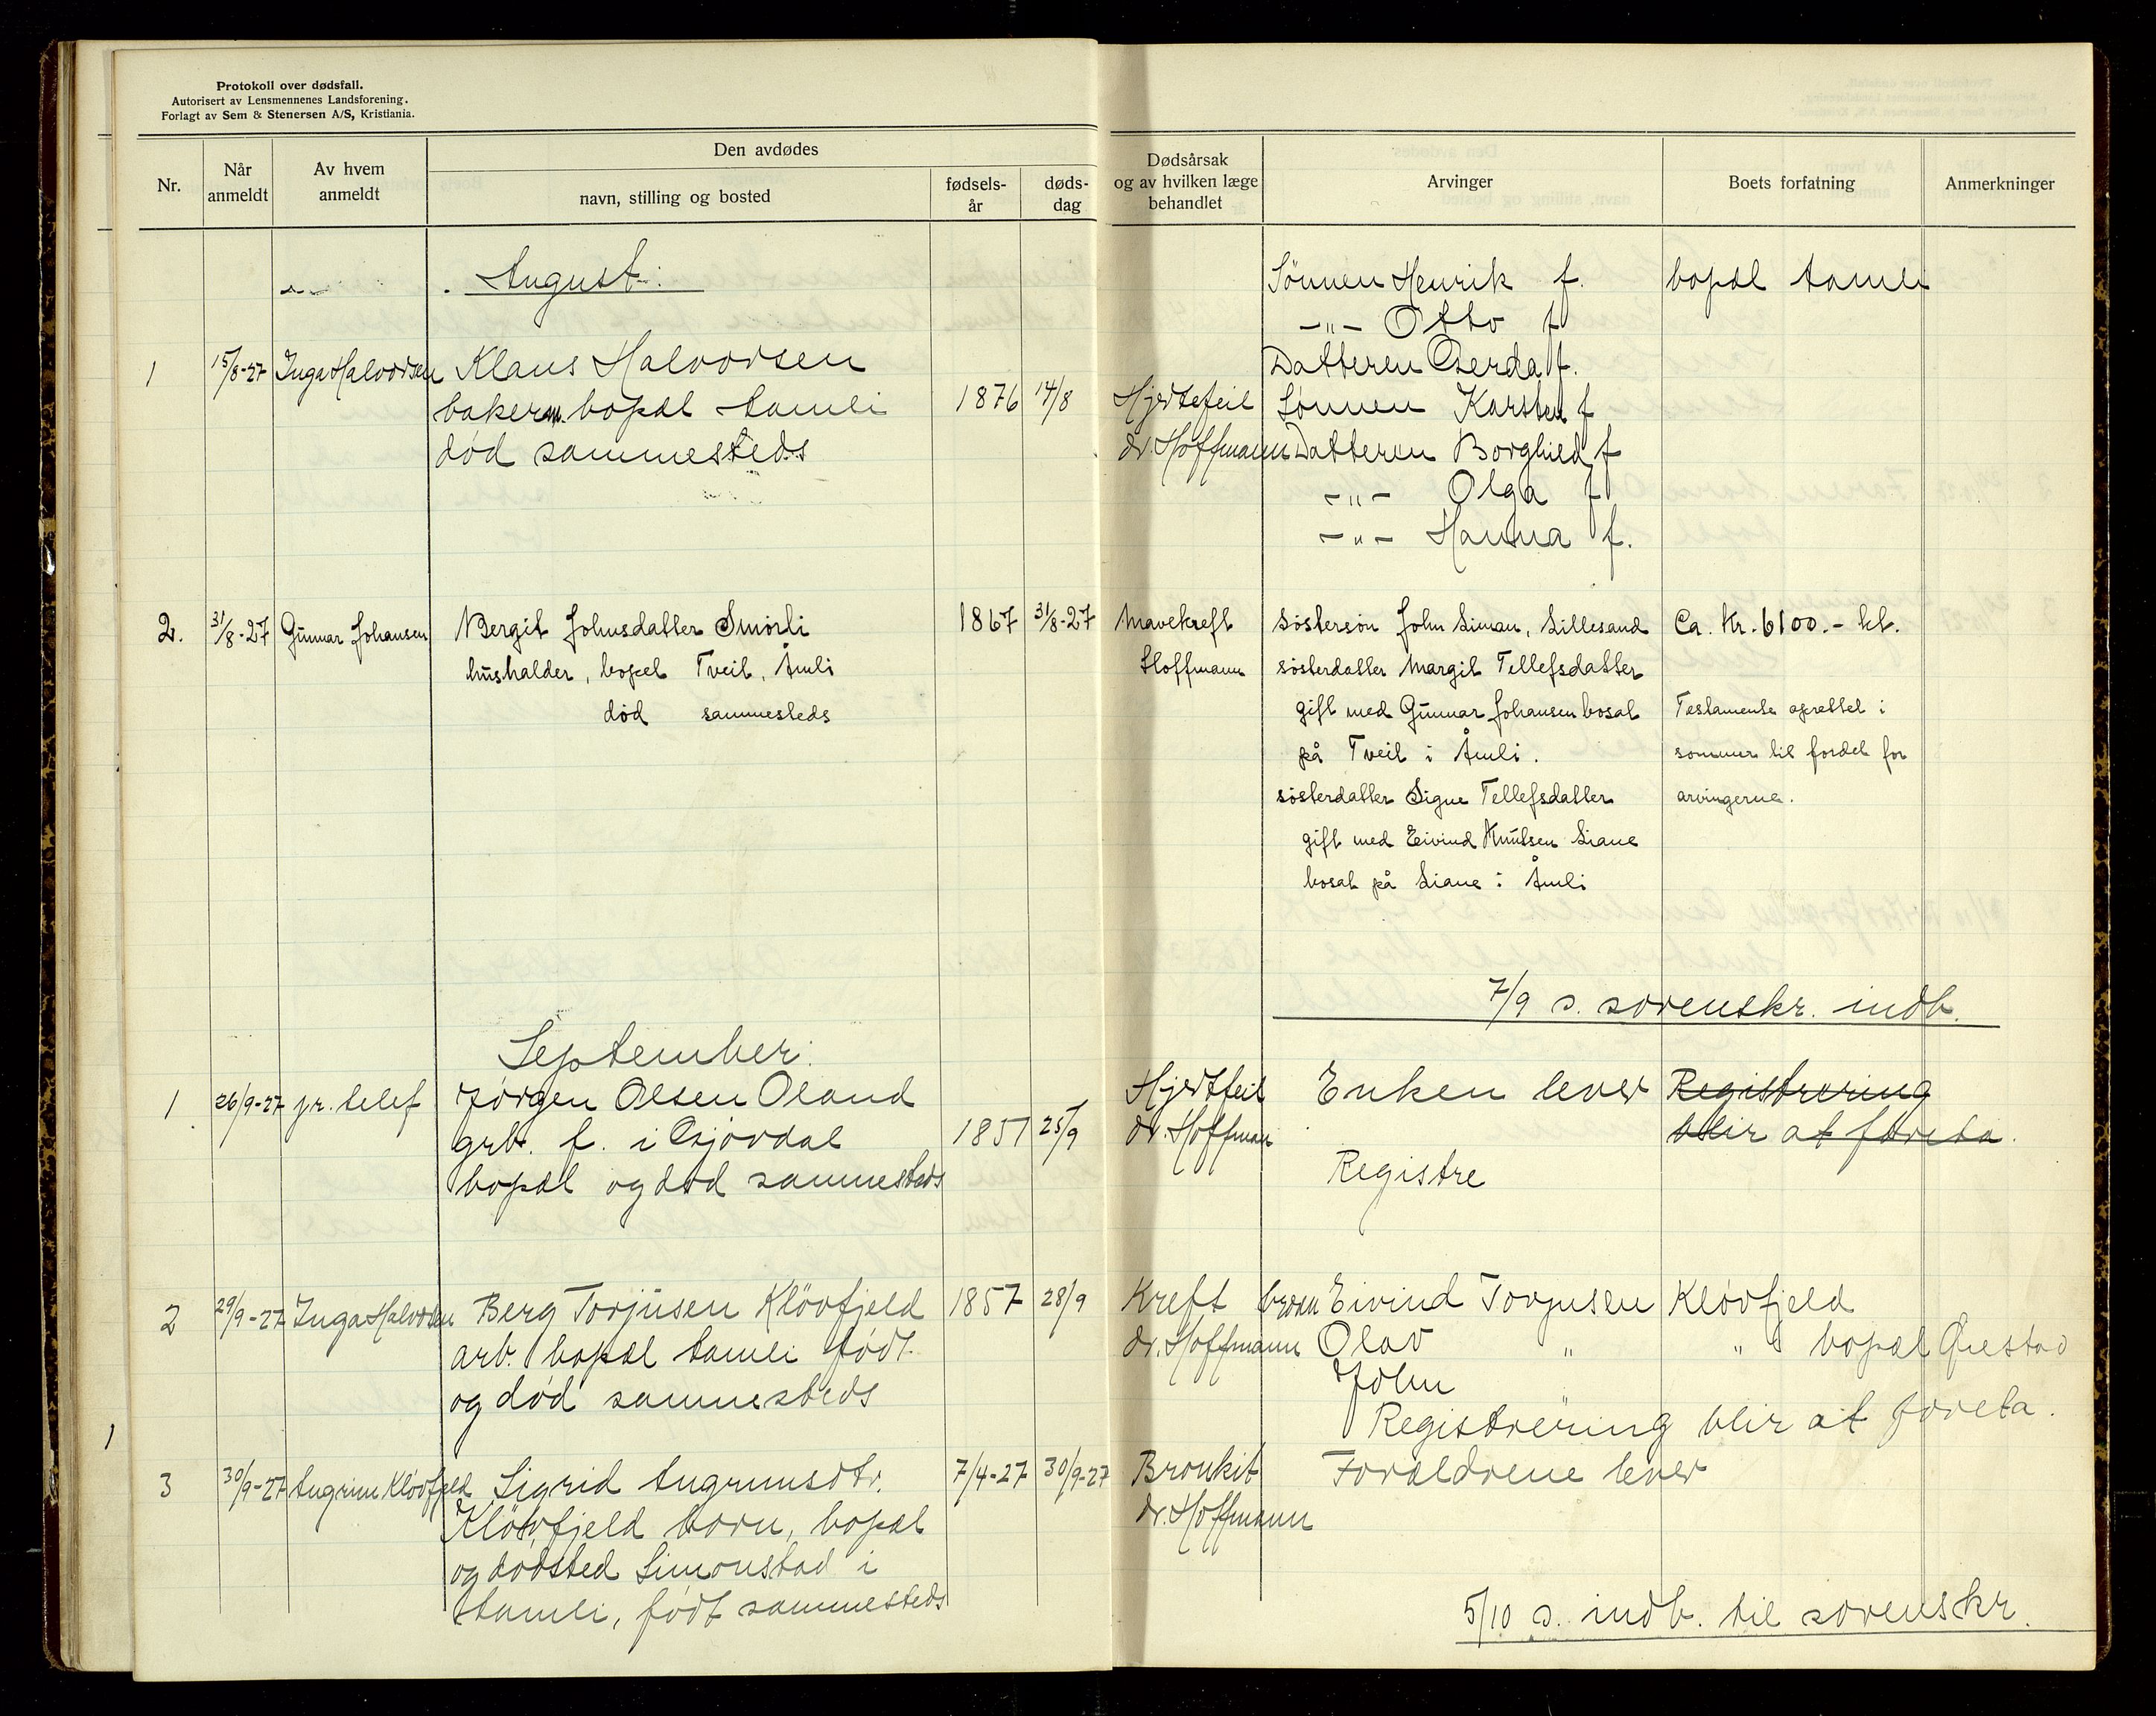 Protokoll over dødsfall.
Autorisert av Lensmennenes Landsforening.
Forlagt av Sem & Stenersen A/S, Kristiania.
Nr.
Når anmeldt
Av hvem anmeldt
Den avdødes
navn, stilling og bosted
fødsels-år
døds-dag
Dødsårsak og av hvilken læge behandlet
Arvinger
Boets forfatning
Anmerkninger
August:
1 15/8-27 Inga Halvorsen Klaus Halvorsen
baker bopæl Aamli 1876 14/8
død sammesteds
Hjertefeil
dr. Hoffmann
Sønnen Henrik f. bopæl Aamli
-"- Otto f
Datteren Gerda f.
Sønnen Karsten f
Datteren Borghild f
-"- Olga f
-"- Hanna f.
2. 31/8-27 Gunnar Johansen Bergit Johnsdatter Smørli 1867 31/8-27
husholder, bopæl Tveit, Åmli
død sammesteds
Mavekreft
Hoffmann
søstersøn John Siman, Lillesand
søsterdatter Margit Tellefsdatter
gift med Gunnar Johansen bosat
på Tveit i Åmli.
søsterdatter Signe Tellefsdatter
gift med Eivind Knutsen Liane
bosat på Liane i Åmli
Ca. Kr. 6100.-
Testamente oprettet i
sommer til fordel for
arvingerne.
7/9 s. sorenskr. indb.
September:
1 26/9-27 pr. telef Jørgen Olsen Oland
grb. f. i Gjøvdal 1851 25/9
bopæl og død sammesteds
Hjertfeil
dr. Hoffman
Enken lever
Registre
Registrering
blir at foreta.
2 29/9-27 Inga Halvorsen Berg Torjusen Kløvfjeld 1857 28/9
arb. bopæl Aamli født
og død sammesteds
Kreft
dr. Hoffmann
Eivind Torjusen Kløvfjeld
Olav " " bopæl
John "
Registrering blir at foreta.
1
3 30/9-27 Angrim Kløvfjeld Sigrid Angrimsdtr. 7/4-27 30/9-27
Kløvfjeld barn, bopæl
og dødsted Simonstad i
Aamli, født sammesteds
Bronkit
dr. Hoffmann
Forældrene lever
5/10 s. indb. til sorenskr.